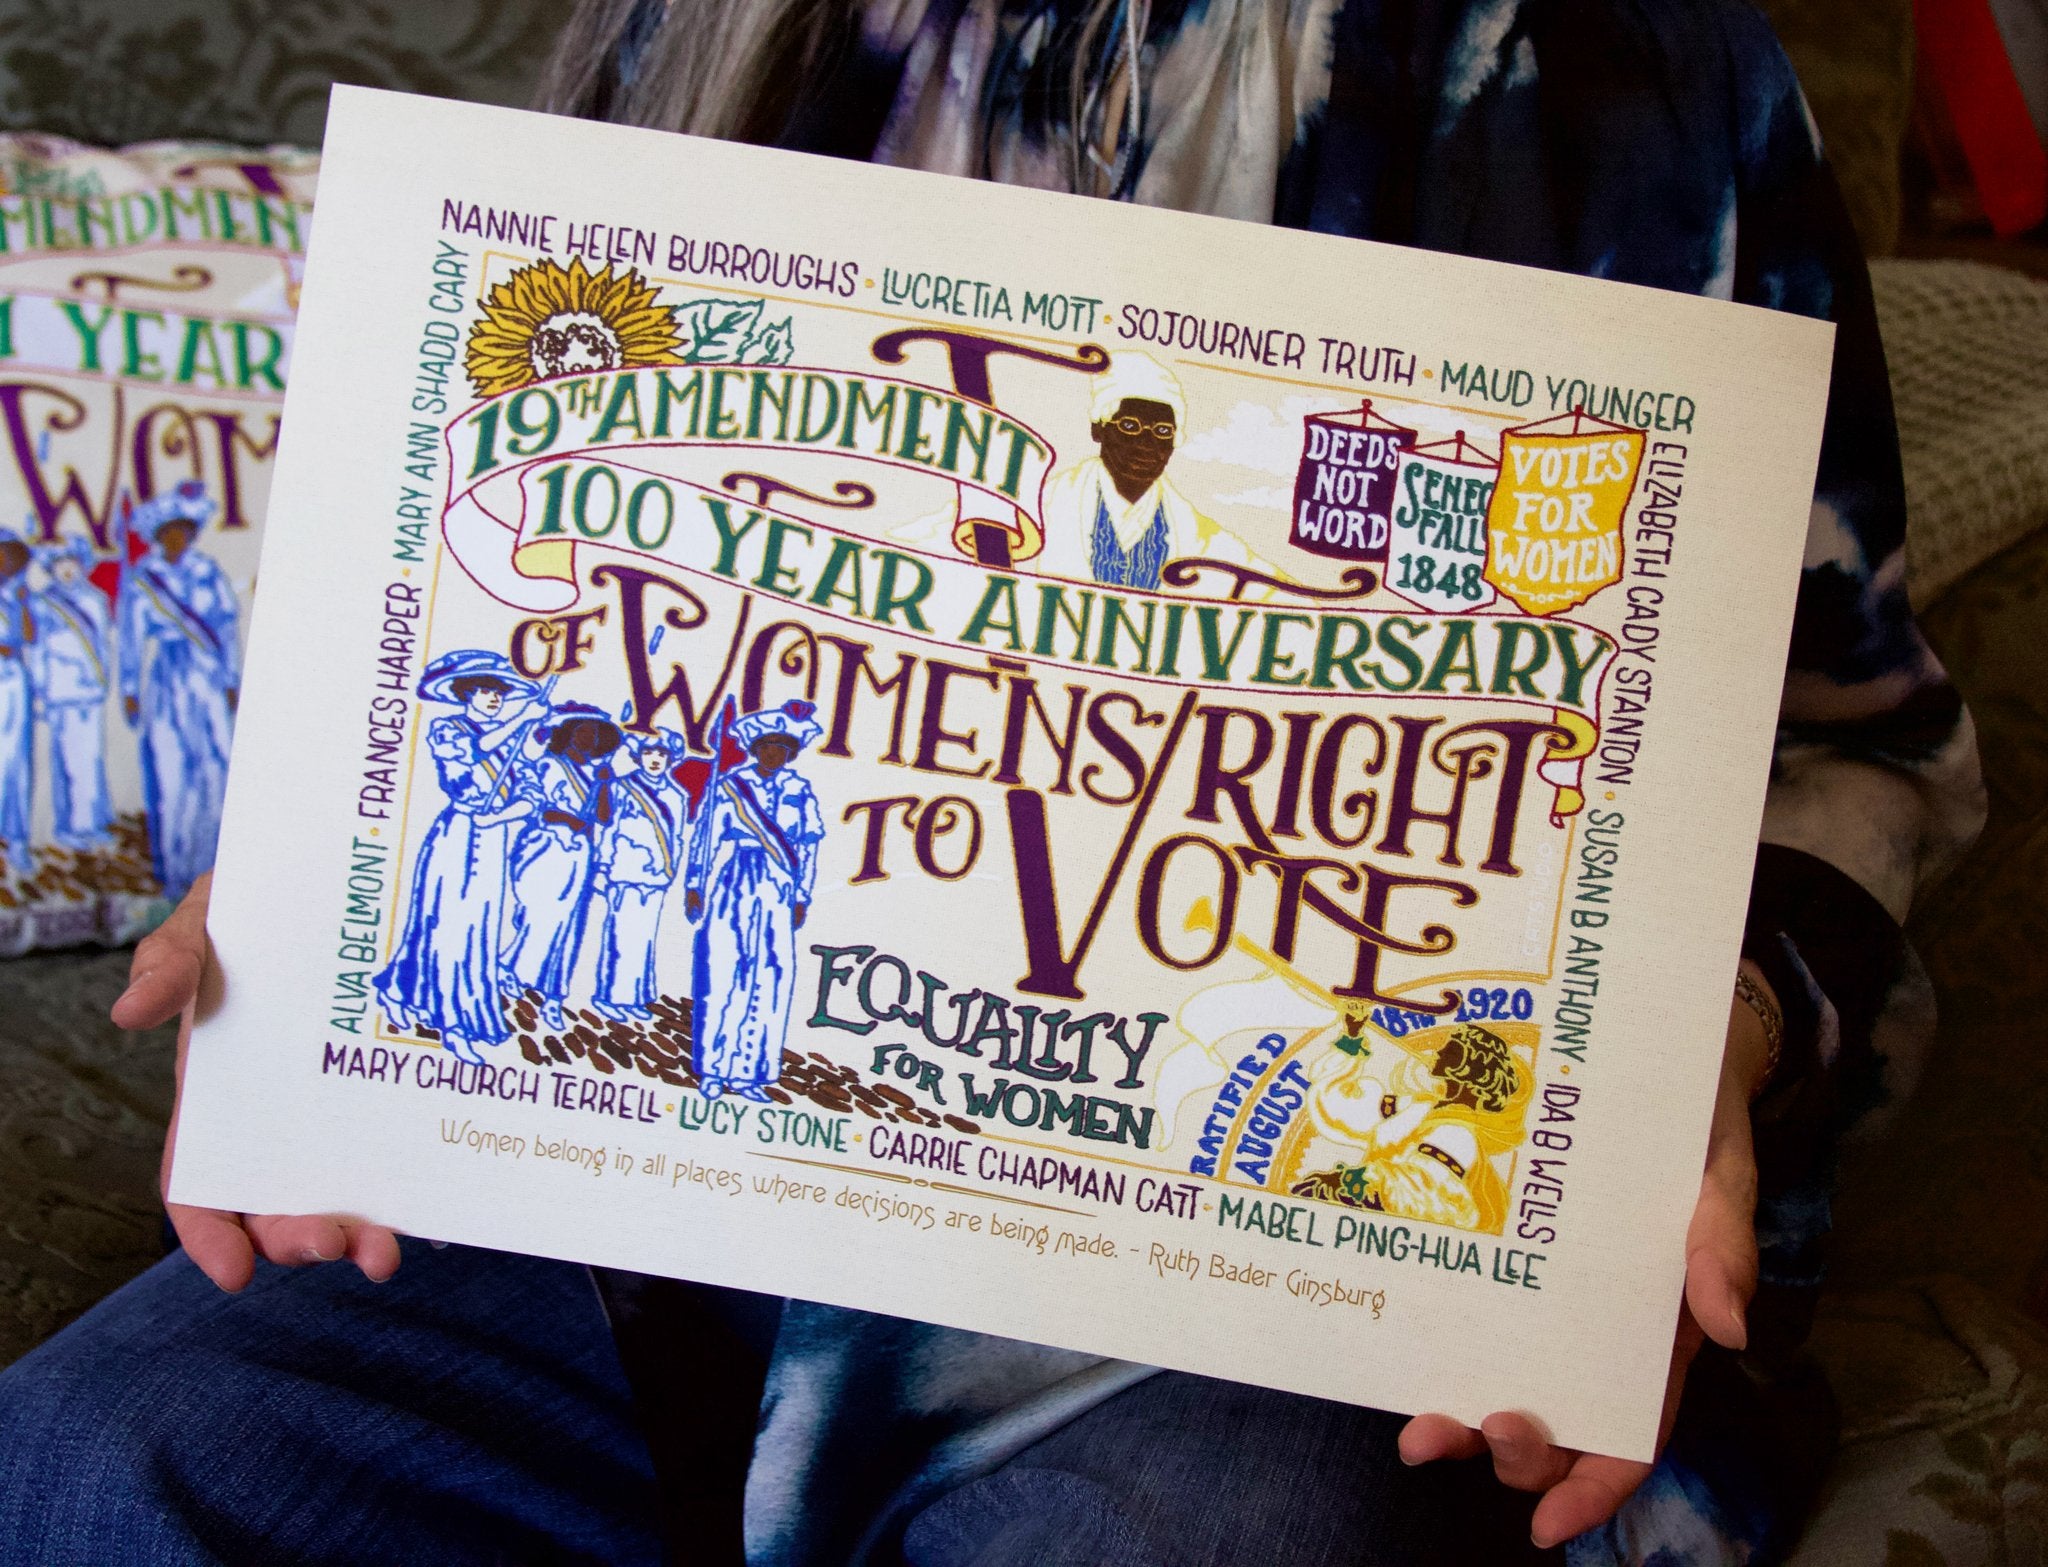 NANNIE HELEN BURROUGHS · LUCRETIA MOTT · SOJOURNER TRUTH · MAUD YOUNGER
ELIZABETH CADY STANTON · SUSAN B ANTHONY · IDA B WELLS
MARY ANN SHADD CARY
FRANCES HARPER ·
ALVA BELMONT ·
19TH AMENDMENT
100 YEAR ANNIVERSARY
OF WOMEN'S RIGHT
TO VOTE
DEEDS
NOT
WORD
SENEC
FALL
1848
VOTES
FOR
WOMEN
EQUALITY
FOR WOMEN
RATIFIED
AUGUST
18TH 1920
MARY CHURCH TERRELL · LUCY STONE · CARRIE CHAPMAN CATT · MABEL PING-HUA LEE
Women belong in all places where decisions are being made. - Ruth Bader Ginsburg
MENDMENT
YEAR
WOM